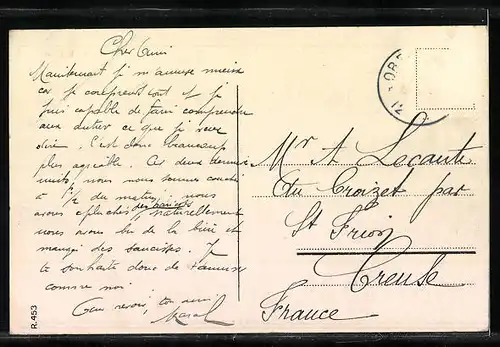 Cher Ami
Maintenant je m'amuse mieux
car je comprends tout et je
suis capable de faire comprendre
aux autres ce que je veux
dire. C'est donc beaucoup
plus agréable. Ces deux dernières
nuits, nous nous sommes couchés
à 1/2 du matin; nous
avons épluché des, naturellement
nous avons bu de la bière et
mangé des saucisses. Je
te souhaite donc de t'amuser
comme moi
Au revoir, ton ami
Mr A Lecante
du Croizet par
St Frion
Creuse
France
R.453